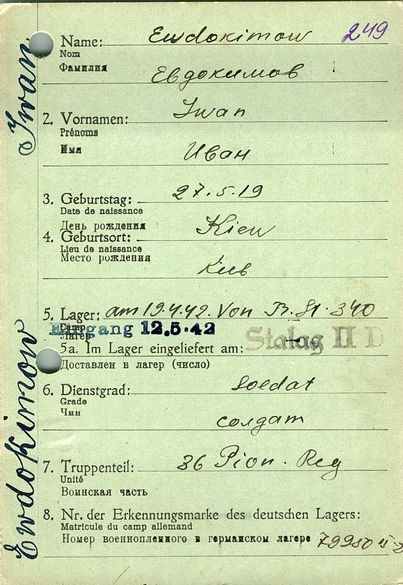 Name: Ewdokimow 249
Nom
Фамилия Евдокимов
2. Vornamen: Iwan
Prénoms
Имя Иван
3. Geburtstag: 27.5.19
Date de naissance
День рождения
4. Geburtsort: Kiew
Lieu de naissance
Место рождения
Киев
5. Lager: am 19.4.42. Von B. St. 340
Camp
Лагерь
Eingang 12.5.42 Stalag II D
5a. Im Lager eingeliefert am:
Доставлен в лагерь (число)
6. Dienstgrad: Soldat
Grade
Чин солдат
7. Truppenteil: 36 Pion. Reg
Unité
Воинская часть
8. Nr. der Erkennungsmarke des deutschen Lagers:
Matricule du camp allemand
Номер военнопленного в германском лагере
Ewdokimow Iwan